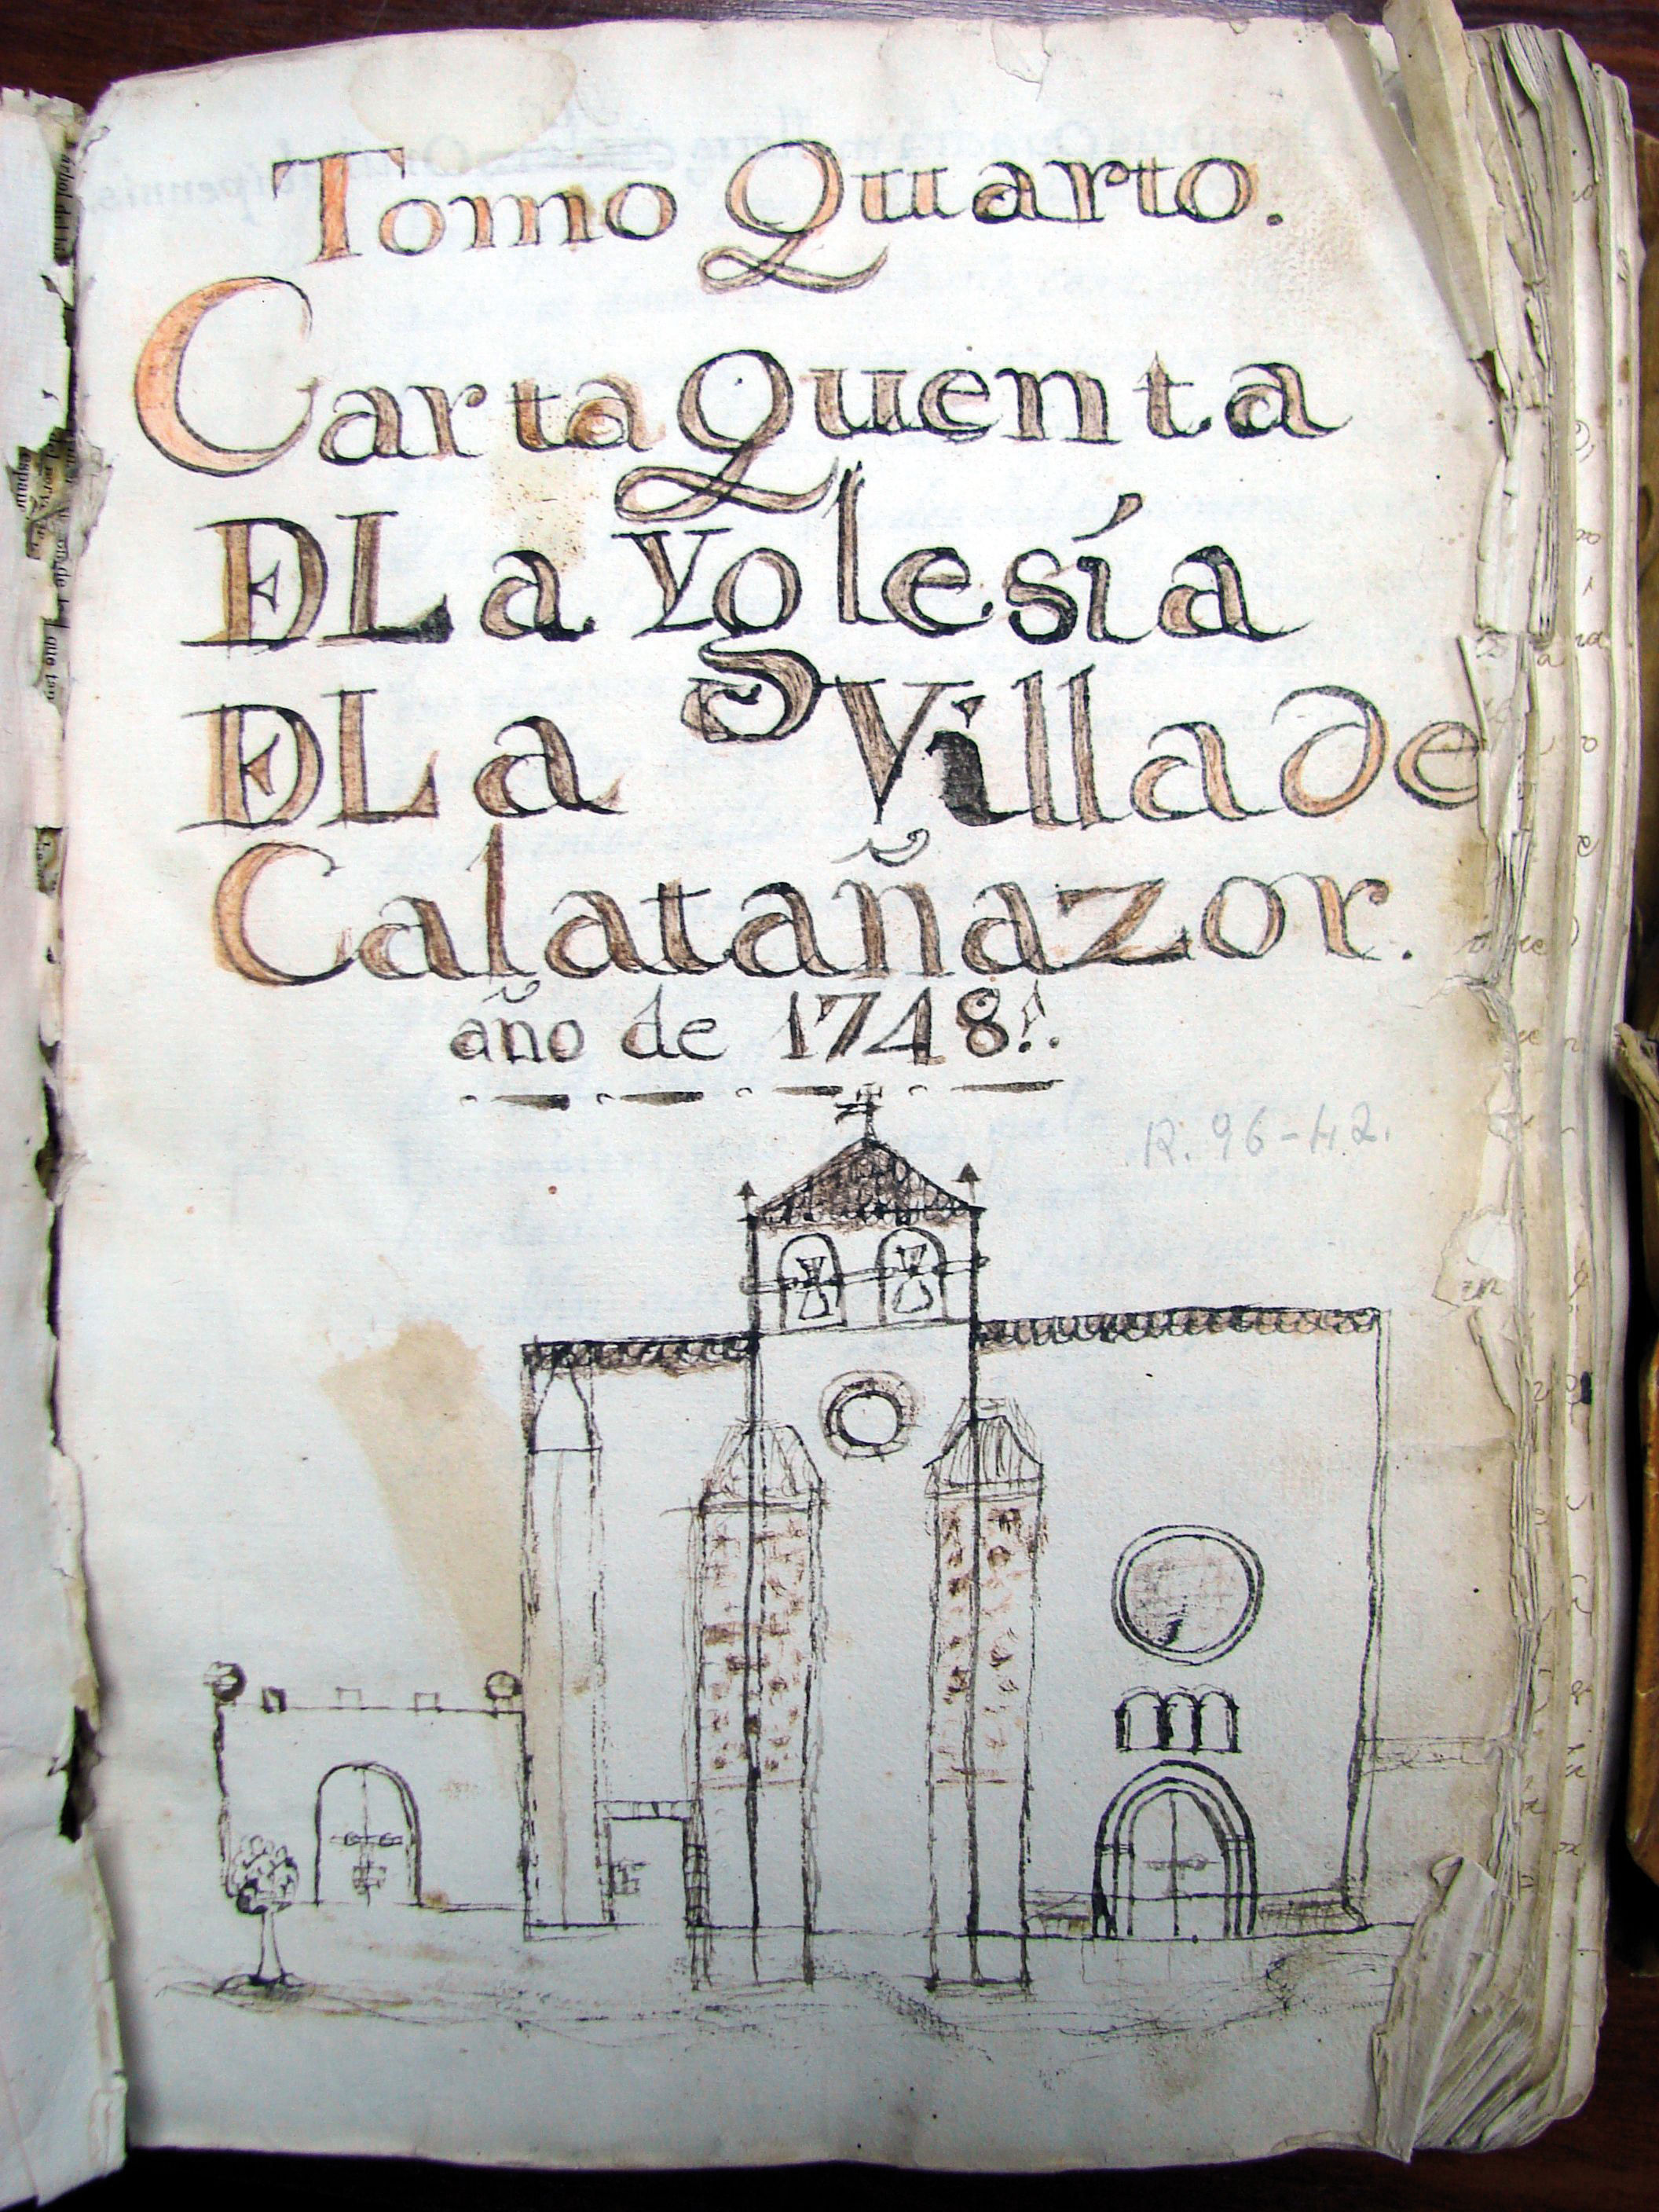 Tomo Quarto.
Carta Quenta
DE La Yglesía
DE La Villa de
Calatañazor.
año de 1748.
R. 96-42.